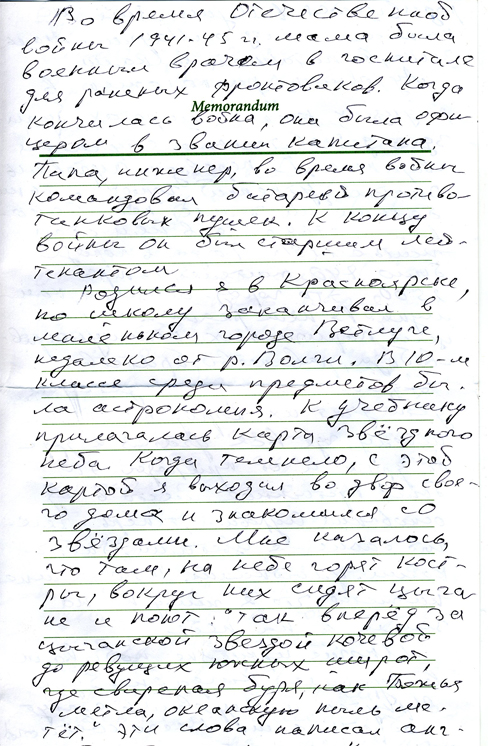 Во время Отечественной
войны 1941-45 гг. мама была
военным врачом в госпитале
для раненых фронтовиков. Когда
Memorandum
кончилась война, она была офи-
цером в звании капитана.
Папа, инженер, во время войны
командовал батареей противо-
танковых пушек. К концу
войны он был старшим лей-
тенантом
Родился я в Красноярске,
но школу заканчивал в
маленьком городе Ветлуге,
недалеко от р. Волги. В 10-м
классе среди предметов бы-
ла астрономия. К учебнику
прилагалась карта звёздного
неба. Когда темнело, с этой
картой я выходил во двор свое-
го дома и знакомился со
звёздами. Мне казалось,
что там, на небе горят кост-
ры, вокруг них сидят цыга-
не и поют: "Так вперёд за
цыганской звездой кочевой
до ревущих южных широт,
где свирепая буря, как Божья
метла, океанскую пыль ме-
тёт." Эти слова написал анг-